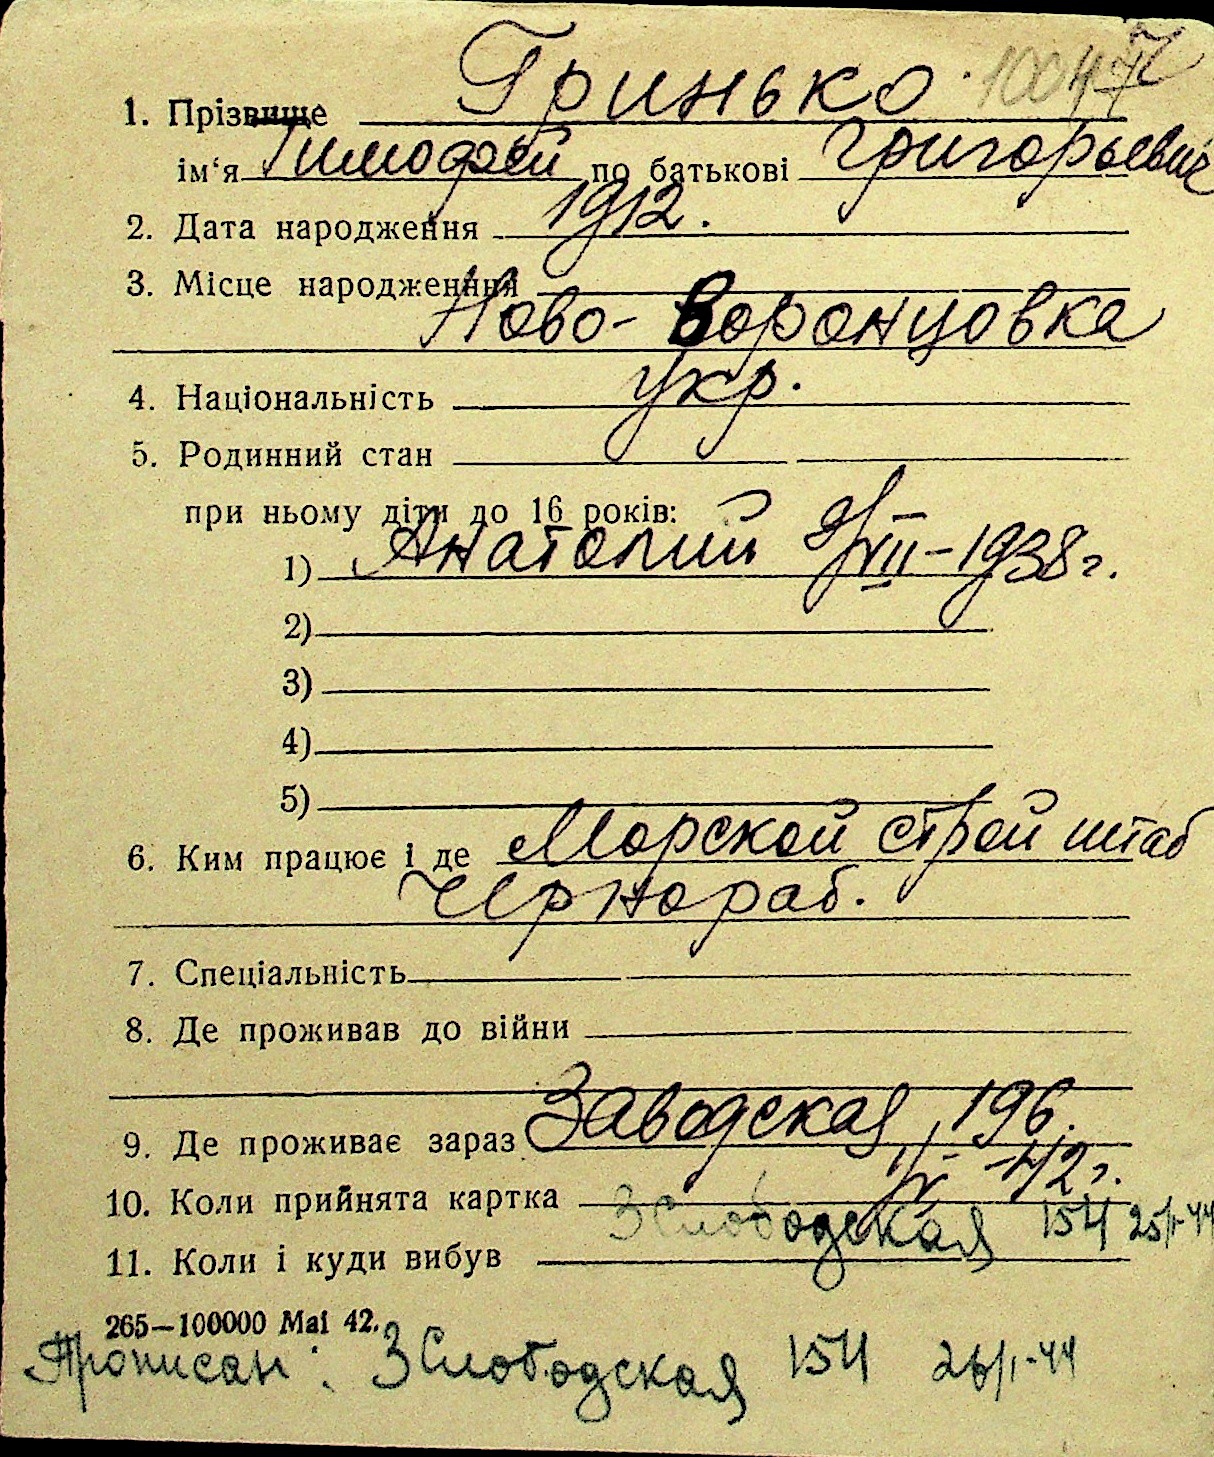 10047
1. Прізвище Гринько
ім‘я Тимофей по батькові Григорьевич
2. Дата народження 1912.
3. Місце народженння
Ново-Воронцовка
4. Національність укр.
5. Родинний стан
при ньому діти до 16 років:
1) Анатолий 9/VII-1938 г.
2)
3)
4)
5)
6. Ким працює і де Морской строй штаб
Чернораб.
7. Спеціальність
8. Де проживав до війни
9. Де проживає зараз Заводская, 196.
10. Коли прийнята картка -42 г.
3 Слободская 154 25/I-44
11. Коли і куди вибув
265—100000 Mai 42.
Прописан: 3 Слободская 154 26/I-44